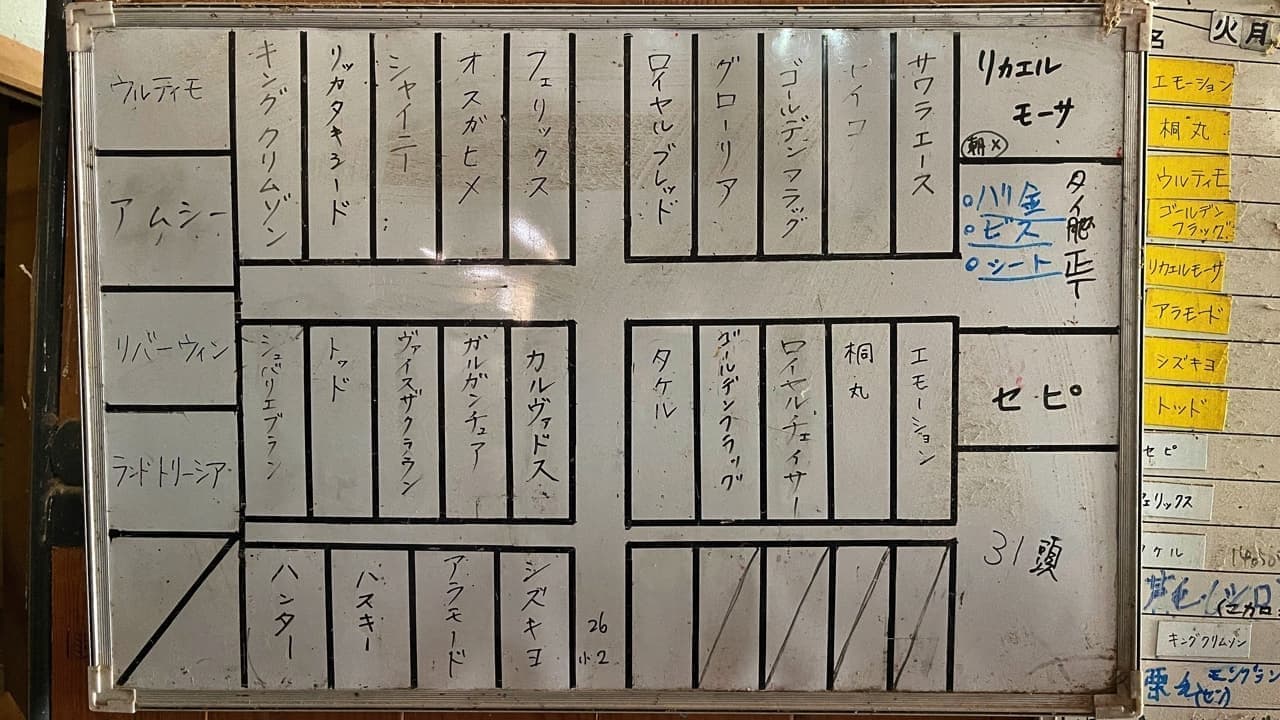 ウルティモ
アムシー
リバーウィン
ランドトリーシア
キングクリムゾン
リッカタキシード
シャイニー
オスガヒメ
フェリックス
ロイヤルブレッド
グローリア
ゴールデンフラッグ
サワラエース
リカエル
モーサ
朝×
ハリ金
ビス
シート
シュバリエブラン
トッド
ヴァイスザクラウン
ガルガンチュア
カルヴァドス
タケル
ゴールデンフラッグ
ロイヤルチェイサー
桐丸
エモーション
セピ
31頭
ハンター
ハスキー
アラモード
シズキヨ
26
小2
名 火 月
エモーション
桐丸
ウルティモ
ゴールデン
フラッグ
リカエルモーサ
アラモード
シズキヨ
トッド
セピ
ェリックス
ケル
キングクリムゾン